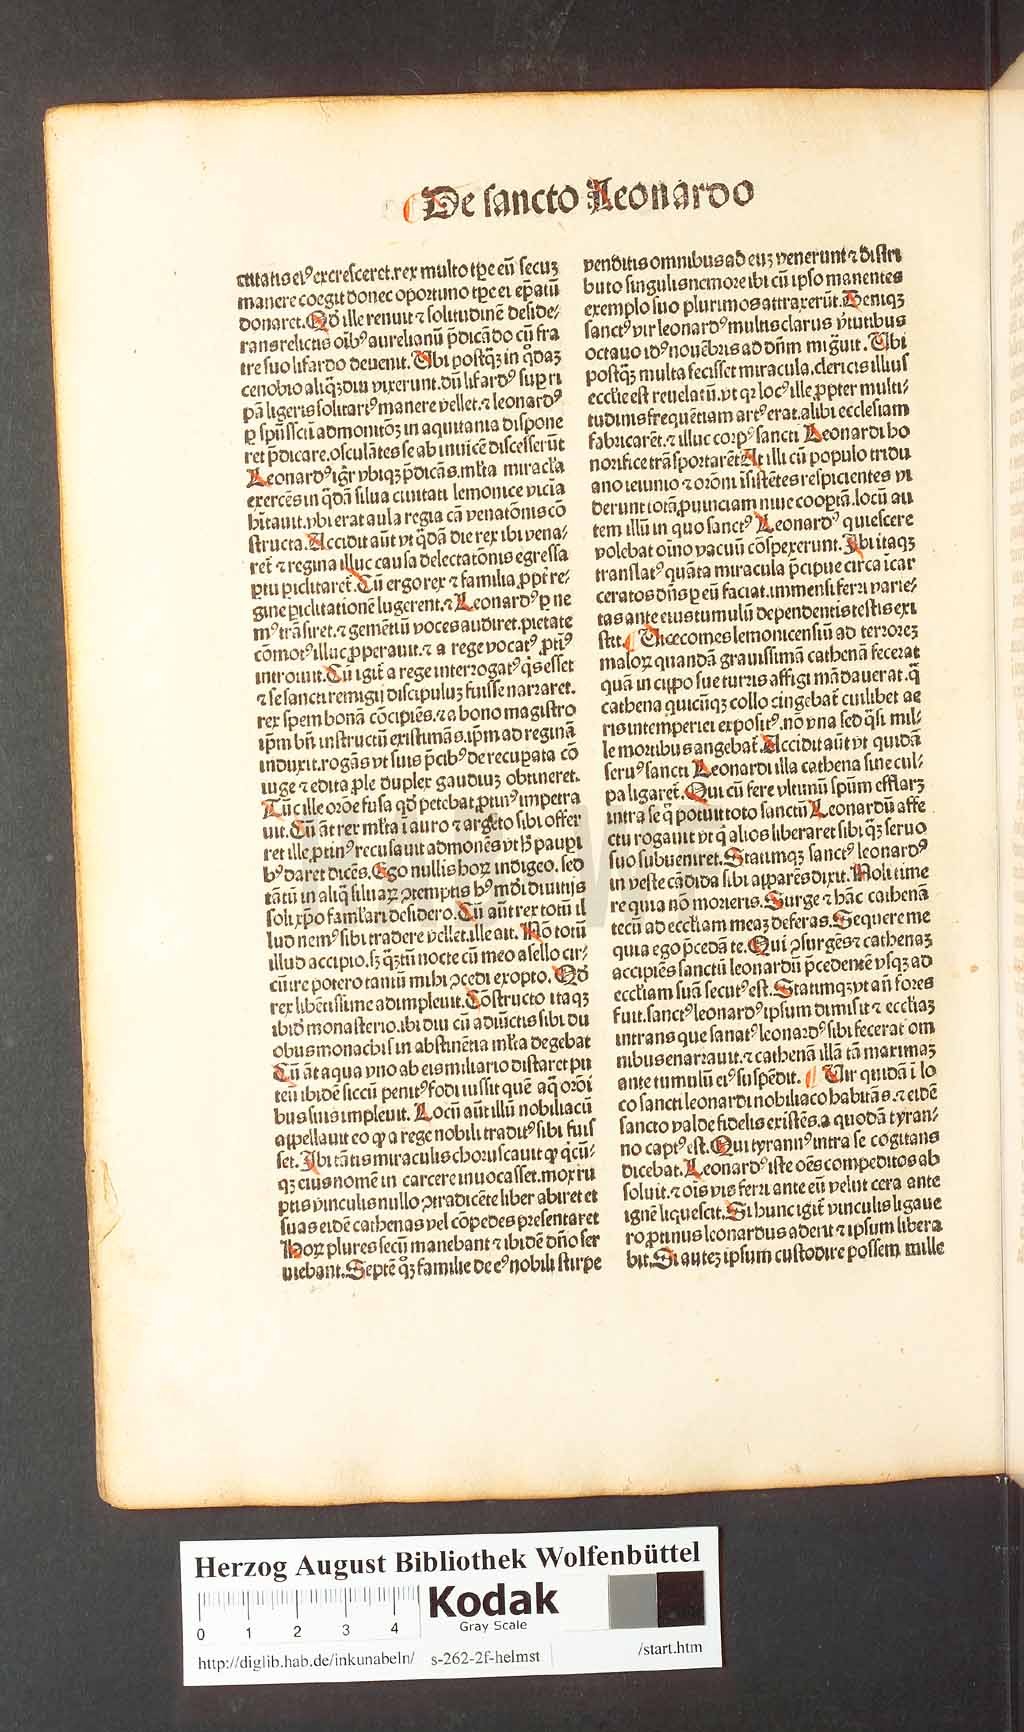 De sancto Leonardo
ctitatis eiꝰ excresceret. rex multo tp̄e eū secuꝫ
manere coegit donec oportuno tp̄e ei ep̄atū
donaret. Qd̄ ille renuit ⁊ solitudinē deside⸗
rans relictis oībꝰ aurelianū p̄dicādo cū fra
tre suo lifardo deuenit. Ubi postqͣꝫ in q̄daꝫ
cenobio aliqͣꝫdiu vixerunt. dū lifardꝰ suꝑ ri
pā ligeris solitariꝰ manere vellet. ⁊ leonardꝰ
ꝑ spūssctū admonitꝰ in aquitania dispone
ret p̄dicare. osculātes se ab inuicē discesserūt
Leonardꝰ igr̄ vbiqꝫ p̄dicās. ml̄ta miracl̄a
exercēs in q̄dā silua ciuitati lemonice vicīa
bītauit. vbi erat aula regia cā venatōnis cō
structa. Accidit aūt vt q̄dā die rex ibi vena⸗
ret̄ ⁊ regina illuc causa delectatōnis egressa
ꝑtu ꝑiclitaret̄. Cū ergo rex ⁊ familia ꝓpt̄ re⸗
gine ꝑiclitationē lugerent. ⁊ Leonardꝰ ꝑ ne
mꝰ trāsiret. ⁊ gemētiū voces audiret. pietate
cōmotꝰ illuc ꝓperauit. ⁊ a rege vocatꝰ ꝓtiꝰ
introiuit. Cū igit̄ a rege interrogatꝰ qͥs esset
⁊ se sancti remigij discipuluꝫ fuisse narraret.
rex spem bonā cōcipiēs. ⁊ a bono magistro
ip̄m bn̄ instructū existimās. ip̄m ad reginā
induxit. rogās vt suis p̄cibꝰ de recuꝑata cō
iuge ⁊ edita ꝓle duplex gaudiuꝫ obtineret.
Tūc ille orōe fusa qd̄ petebat ꝓtinꝰ impetra
uit. Cū āt rex ml̄ta ī auro ⁊ argēto sibi offer
ret ille ꝓtinꝰ recusauit admonēs vt hͦ paupi
bꝰ daret dicēs. Ego nullis hoꝝ indigeo. sed
tātū in aliq̄ siluaꝝ ꝯtemptis bꝰ mūdi diuitijs
soli xp̄o famlari desidero. Cū aūt rex totū il
lud nemꝰ sibi tradere vellet. ille ait. Nō totū
illud accipio. sꝫ qͣꝫtū nocte cū meo asello cir⸗
cūire potero tantū mihi ꝯcedi exopto. Qd̄
rex libētissime adimpleuit. Cōstructo itaqꝫ
ibid̄ monasterio. ibi diu cū adiūctis sibi du
obus monachis in abstinētia ml̄ta degebat
Cū āt aqua vno ab eis miliario distaret pu
teū ibidē siccū penitꝰ fodi iussit quē aq̄ orōi
bus suis impleuit. Locū aūt illū nobiliacū
appellauit eo ꝙ a rege nobili traditꝰ sibi fuis
set. Ibi tātis miraculis choruscauit ꝙ qͥcū⸗
qꝫ eius nomē in carcere inuocasset. mox ru
ptis vinculis nullo ꝯtradicēte liber abiret et
suas eidē cathenas vel cōpedes presentaret
Hoꝝ plures secū manebant ⁊ ibidē dn̄o ser
uiebant. Septē qꝫ familie de eꝰ nobili stirpe
venditis omnibus ad euꝫ venerunt ⁊ distri
buto singulis nemore ibi cū ipso manentes
exemplo suo plurimos attraxerūt. Deniqꝫ
sanctꝰ vir leonardꝰ multis clarus v̄tutibus
octauo idꝰ nouēbris ad dn̄m migͣuit. Ubi
postqͣꝫ multa fecisset miracula. clericis illius
ecclīe est reuelatū. vt qꝛ locꝰ ille ꝓpter multi⸗
tudinis frequētiam artꝰ erat. alibi ecclesiam
fabricarēt. ⁊ illuc corpꝰ sancti Leonardi ho
norifice trāsportarēt. At illi cū populo tridu
ano ieiunio ⁊ orōni īsistētes respicientes vi
derunt totā ꝓuinciam niue coopertā. locū au
tem illū in quo sanctꝰ Leonardꝰ quiescere
volebat oīno vacuū cōspexerunt. Ibi itaqꝫ
translatꝰ quāta miracula p̄cipue circa īcar
ceratos dn̄s ꝑ eū faciat. immensi ferri varie⸗
tas ante eius tumulū dependentis testis exi
stit. Vicecomes lemonicensiū ad terroreꝫ
maloꝝ quandā grauissimā cathenā fecerat
quā in cippo sue turris affigi mādauerat. q̄
cathena quicūqꝫ collo cingebat̄ cuilibet ae
ris intemperiei expositꝰ. nō vna sed qͣsi mil⸗
le mortibus angebat̄. Accidit aūt vt quidā
seruꝰ sancti Leonardi illa cathena sine cul⸗
pa ligaret̄. Qui cū fere vltimū spūm efflarꝫ
intra se q̄ potuit toto sanctū Leonardū affe
ctu rogauit vt q̄ alios liberaret sibi qͣꝫ seruo
suo subueniret. Statimqꝫ sanctꝰ leonardꝰ
in veste cādida sibi apparēs dixit. Noli time
re quia nō morieris. Surge ⁊ hāc cathenā
tecū ad eccl̄iam meaꝫ deferas. Sequere me
quia ego p̄cedā te. Qui ꝯsurgēs ⁊ cathenaꝫ
accipiēs sanctū leonardū p̄cedentē vsqꝫ ad
eccl̄iam suā secutꝰ est. Statimqꝫ vt añ fores
fuit. sanctꝰ leonardꝰ ipsum dimisit ⁊ eccl̄iaꝫ
intrans que sanatꝰ leonardꝰ sibi fecerat om
nibus enarrauit. ⁊ cathenā illā tā maximaꝫ
ante tumulū eiꝰ suspēdit. Vir quidā ī lo
co sancti leonardi nobiliaco habitās. ⁊ eidē
sancto valde fidelis existēs. a quodā tyran⸗
no captꝰ est. Qui tyrannꝰ intra se cogitans
dicebat. Leonardꝰ iste oēs compeditos ab
soluit. ⁊ oīs vis ferri ante eū velut cera ante
ignē liquescit. Si hunc igit̄ vinculis ligaue
ro ꝓtinus leonardus aderit ⁊ ipsum libera
bit. Si auteꝫ ipsum custodire possem mille
Herzog August Bibliothek Wolfenbüttel
0 1 2 3 4
Kodak
Gray Scale
http://diglib.hab.de/inkunabeln/ s-262-2f-helmst /start.htm